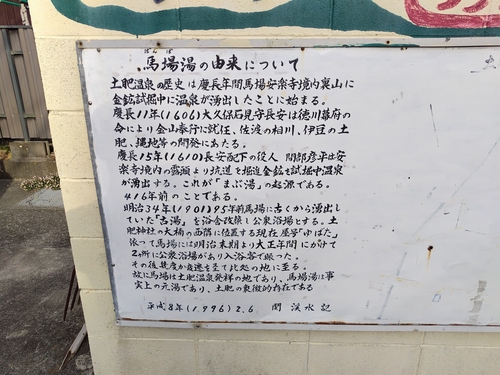 ばんば
馬場湯の由来について
土肥温泉の歴史は慶長年間馬場安楽寺境内裏山に
金鉱試掘中に温泉が湧出したことに始まる。
慶長11年(1606)大久保石見守長安は徳川幕府の
命により金山奉行に就任、佐渡の相川、伊豆の土
肥、縄地等の開発にあたる。
慶長15年(1610)長安配下の役人 間部彦平は安
楽寺境内の露頭より坑道を掘進金鉱を試掘中温泉
が湧出する。これが「まぶ湯」の起源である。
416年前のことである。
明治34年(1901)95年前馬場に古くから湧出し
ていた「古湯」を浴舎改築し公衆浴場とする。土
肥神社の大楠の西隣に位置する現在屋号"ゆばた"
依って馬場には明治末期より大正年間にかけて
2ヶ所に公衆浴場があり入浴客で賑った。
その後幾度か変遷を至て此処の地に至る。
故に馬場は土肥温泉発祥の地であり、馬場湯は事
実上の元湯であり、土肥の象徴的存在である
平成8年(1996)2.6 関 渓水記